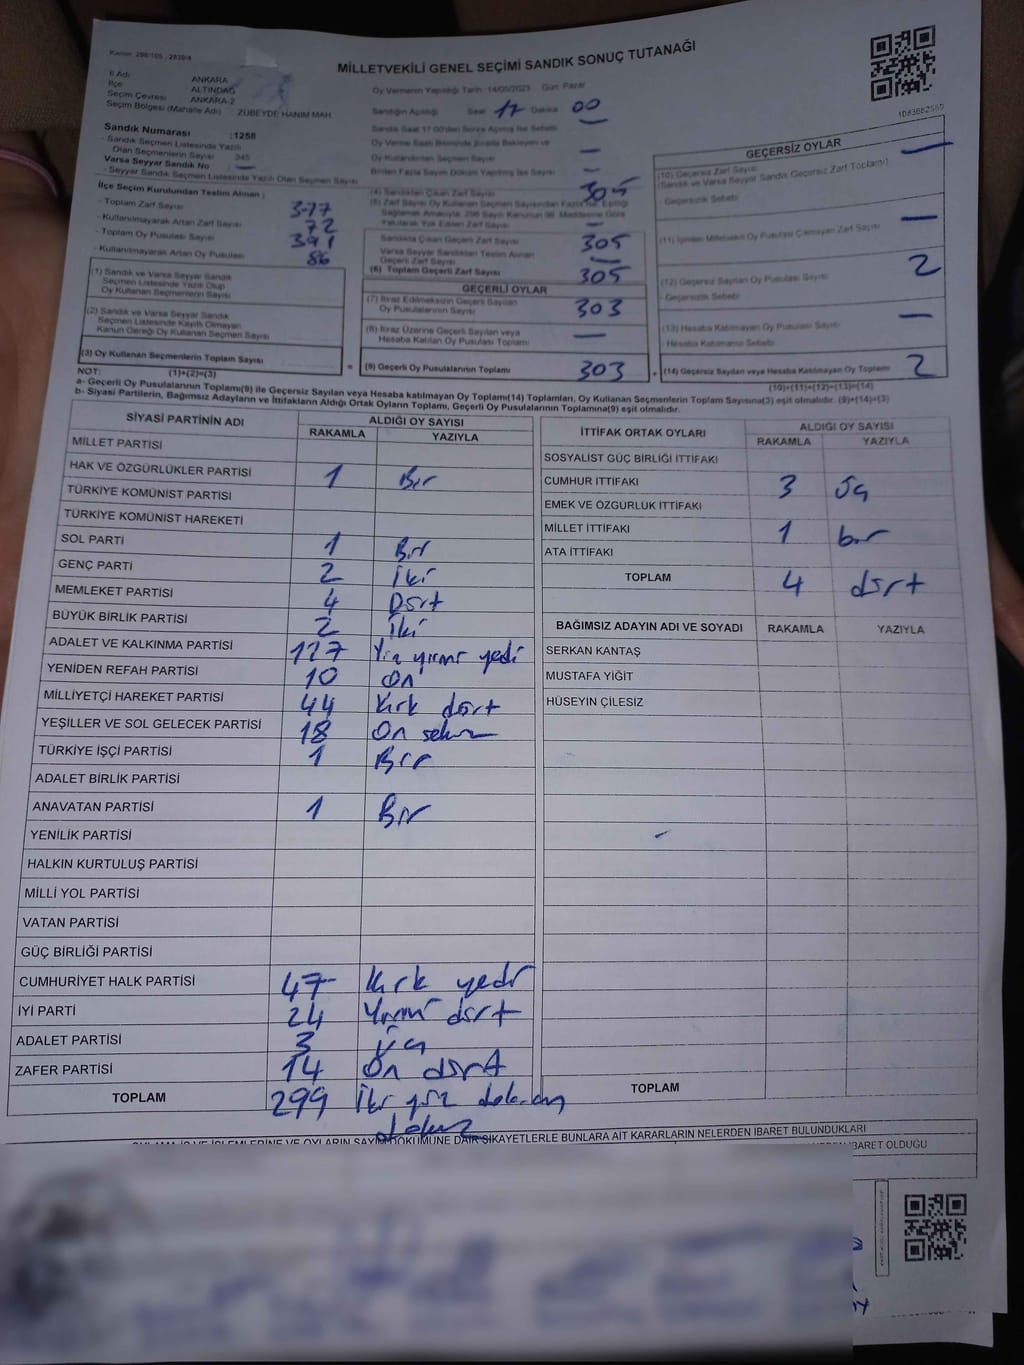 Kanun: 298/105 , 2839/4
MİLLETVEKİLİ GENEL SEÇİMİ SANDIK SONUÇ TUTANAĞI
İl Adı ANKARA
İlçe ALTINDAĞ
Seçim Çevresi ANKARA-2
Seçim Bölgesi (Mahalle Adı) : ZÜBEYDE HANIM MAH.
Sandık Numarası :1258
- Sandık Seçmen Listesinde Yazılı
Olan Seçmenlerin Sayısı 345
Varsa Seyyar Sandık No
- Seyyar Sandık Listesinde Yazılı Olan Seçmen Sayısı
İlçe Seçim Kurulundan Teslim Alınan ;
- Toplam Zarf Sayısı 377
- Kullanılmayarak Artan Zarf Sayısı 72
- Toplam Oy Pusulası Sayısı 391
- Kullanılmayarak Artan Oy Pusulası 86
(1) Sandık ve Varsa Seyyar Sandık
Seçmen Listesinde Yazılı Olup
Oy Kullanan Seçmenlerin Sayısı
(2) Sandık ve Varsa Seyyar Sandık
Seçmen Listesinde Kayıtlı Olmayan
Kanun Gereği Oy Kullanan Seçmen Sayısı
(3) Oy Kullanan Seçmenlerin Toplam Sayısı
Oy Vermenin Yapıldığı Tarih :14/05/2023 Gün: Pazar
Sandığın Açıldığı Saat 17 Dakika 00
Sandık Saat 17:00'den Sonra Açılmış İse Sebebi
Oy Verme Saati Bitiminde Sırada Bekleyen ve
Oy Kullandırılan Seçmen Sayısı —
Birden Fazla Sayım Döküm Yapılmış İse Sayısı —
(4) Sandıktan Çıkan Zarf Sayısı 305
(5) Zarf Sayısı Oy Kullanan Seçmen Sayısından Fazla ise, Eşitliği
Sağlamak Amacıyla, 298 Sayılı Kanunun 98. Maddesine Göre
Yakılarak Yok Edilen Zarf Sayısı —
Sandıkta Çıkan Geçerli Zarf Sayısı 305
Varsa Seyyar Sandıktan Teslim Alınan
Geçerli Zarf Sayısı —
(6) Toplam Geçerli Zarf Sayısı 305
GEÇERLİ OYLAR
(7) İtiraz Edilmeksizin Geçerli Sayılan
Oy Pusulasının Sayısı 303
(8) İtiraz Üzerine Geçerli Sayılan veya
Hesaba Katılan Oy Pusulası Toplamı —
= (9) Geçerli Oy Pusulalarının Toplamı 303 +
GEÇERSİZ OYLAR
(10) Geçersiz Zarf Sayısı —
(Sandık ve Varsa Seyyar Sandık Geçersiz Zarf Toplamı)
- Geçersizlik Sebebi
(11) İçinden Milletvekili Oy Pusulası Çıkmayan Zarf Sayısı —
(12) Geçersiz Sayılan Oy Pusulası Sayısı 2
- Geçersizlik Sebebi
(13) Hesaba Katılmayan Oy Pusulası Sayısı —
- Hesaba Katılmama Sebebi
(14) Geçersiz Sayılan veya Hesaba Katılmayan Oy Toplamı 2
NOT: (1)+(2)=(3) (10)+(11)+(12)+(13)=(14)
a- Geçerli Oy Pusulalarının Toplamı(9) ile Geçersiz Sayılan veya Hesaba katılmayan Oy Toplamı(14) Toplamları, Oy Kullanan Seçmenlerin Toplam Sayısına(3) eşit olmalıdır. (9)+(14)=(3)
b- Siyasi Partilerin, Bağımsız Adayların ve İttifakların Aldığı Ortak Oyların Toplamı, Geçerli Oy Pusulalarının Toplamına(9) eşit olmalıdır.
SİYASİ PARTİNİN ADI ALDIĞI OY SAYISI
RAKAMLA YAZIYLA
MİLLET PARTİSİ
HAK VE ÖZGÜRLÜKLER PARTİSİ 1 Bir
TÜRKİYE KOMÜNİST PARTİSİ
TÜRKİYE KOMÜNİST HAREKETİ
SOL PARTİ 1 Bir
GENÇ PARTİ 2 İki
MEMLEKET PARTİSİ 4 Dört
BÜYÜK BİRLİK PARTİSİ 2 İki
ADALET VE KALKINMA PARTİSİ 127 Yüz yirmi yedi
YENİDEN REFAH PARTİSİ 10 On
MİLLİYETÇİ HAREKET PARTİSİ 44 Kırk dört
YEŞİLLER VE SOL GELECEK PARTİSİ 18 On sekiz
TÜRKİYE İŞÇİ PARTİSİ 1 Bir
ADALET BİRLİK PARTİSİ
ANAVATAN PARTİSİ 1 Bir
YENİLİK PARTİSİ
HALKIN KURTULUŞ PARTİSİ
MİLLİ YOL PARTİSİ
VATAN PARTİSİ
GÜÇ BİRLİĞİ PARTİSİ
CUMHURİYET HALK PARTİSİ 47 Kırk yedi
İYİ PARTİ 24 Yirmi dört
ADALET PARTİSİ 3 Üç
ZAFER PARTİSİ 14 On dört
TOPLAM 299 İki yüz doksan
dokuz
İTTİFAK ORTAK OYLARI ALDIĞI OY SAYISI
RAKAMLA YAZIYLA
SOSYALİST GÜÇ BİRLİĞİ İTTİFAKI
CUMHUR İTTİFAKI 3 üç
EMEK VE ÖZGÜRLÜK İTTİFAKI
MİLLET İTTİFAKI 1 bir
ATA İTTİFAKI
TOPLAM 4 dört
BAĞIMSIZ ADAYIN ADI VE SOYADI RAKAMLA YAZIYLA
SERKAN KANTAŞ
MUSTAFA YİĞİT
HÜSEYİN ÇİLESİZ
TOPLAM
SAYIM DÖKÜMÜNE DAİR ŞİKAYETLERLE BUNLARA AİT KARARLARIN NELERDEN İBARET BULUNDUKLARI
İBARET OLDUĞU